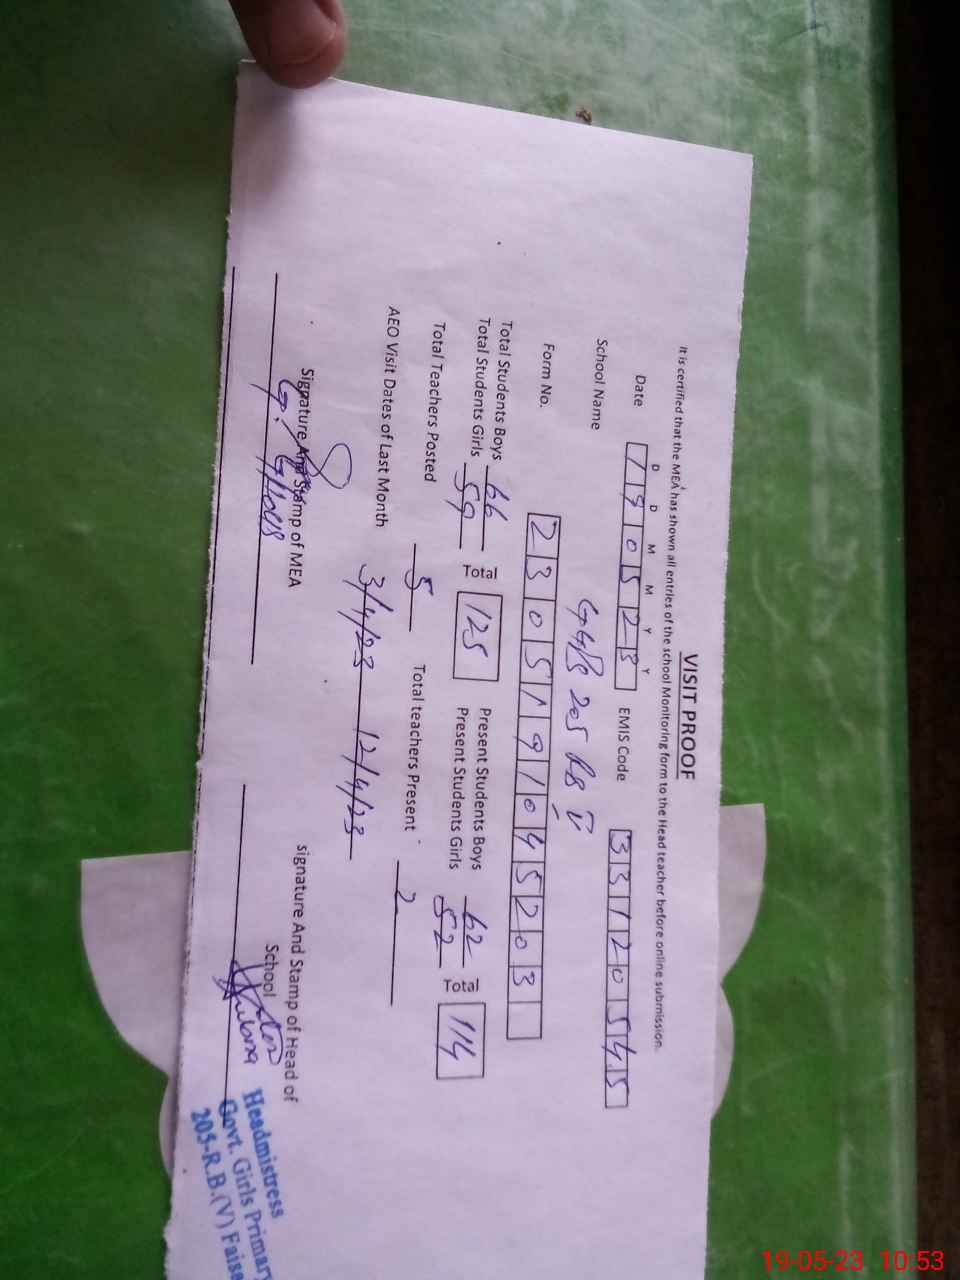 VISIT PROOF
It is certified that the MEA has shown all entries of the school Monitoring form to the Head teacher before online submission.
D D M M Y Y
Date 19 05 23 EMIS Code 33120545
School Name GGPS 205 RB V
Form No. 2305191045203
Total Students Boys 66 Total 125 Present Students Boys 62 Total 114
Total Students Girls 59 Present Students Girls 52
Total Teachers Posted 5 Total teachers Present 2
AEO Visit Dates of Last Month 3/4/23 12/4/23
Signature And Stamp of MEA
signature And Stamp of Head of School
Headmistress
Govt. Girls Primary
205-R.B.(V) Faisa
19-05-23 10:53